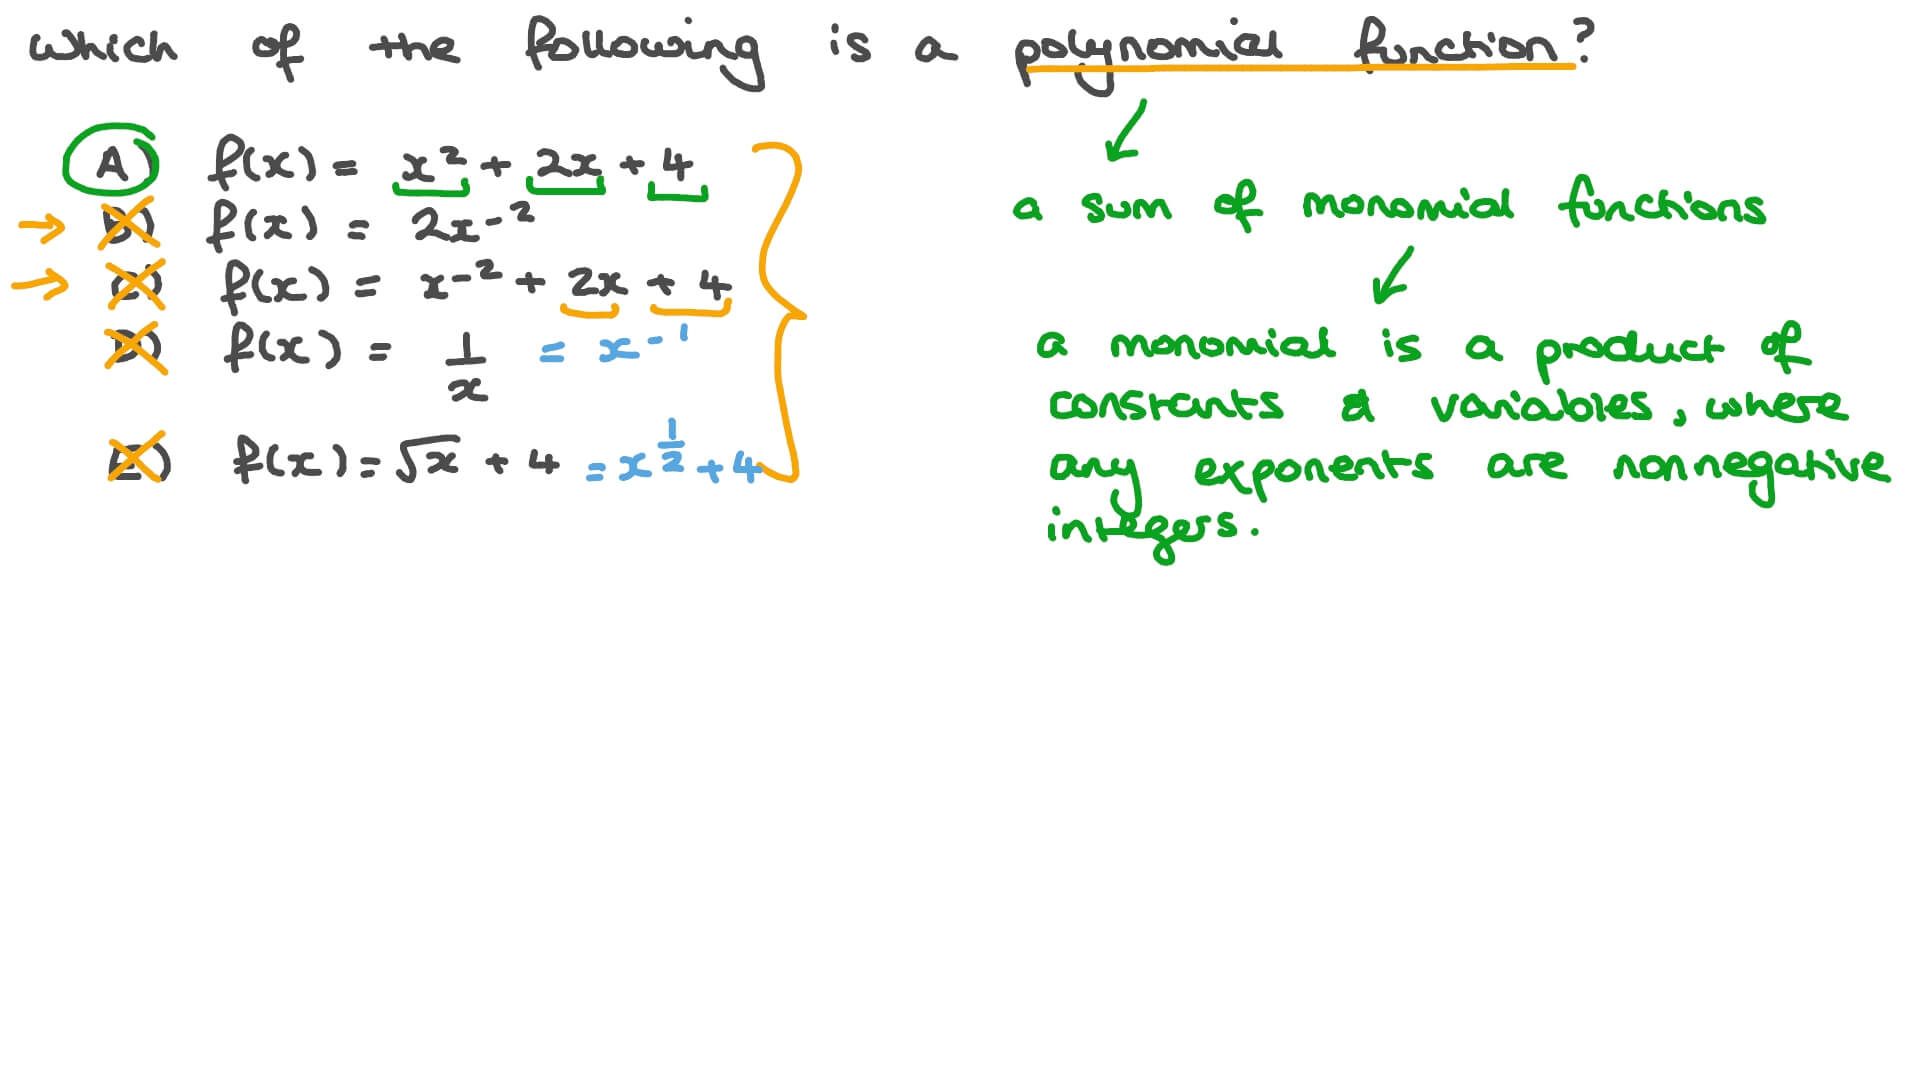 which of the following is a polynomial function?
A) f(x) = x² + 2x + 4
B) f(x) = 2x⁻²
C) f(x) = x⁻² + 2x + 4
D) f(x) = 1/x = x⁻¹
E) f(x) = √x + 4 = x^(1/2) + 4
a sum of monomial functions
a monomial is a product of
constants & variables, where
any exponents are nonnegative
integers.